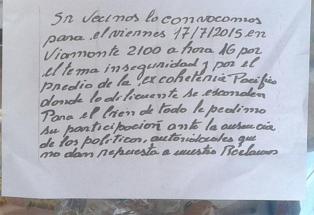 Sr Vecinos lo convocamos
para el viernes 17/7/2015 en
Viamonte 2100 a hora 16 por
el tema inseguridad y por el
predio de la ex coheteria Pacifico
donde lo dilicuente se esconden
Para el bien de todo le pedimo
su participación ante la ausencia
de los politicos, autori locales que
no dan repuesta a nuestro Reclamos